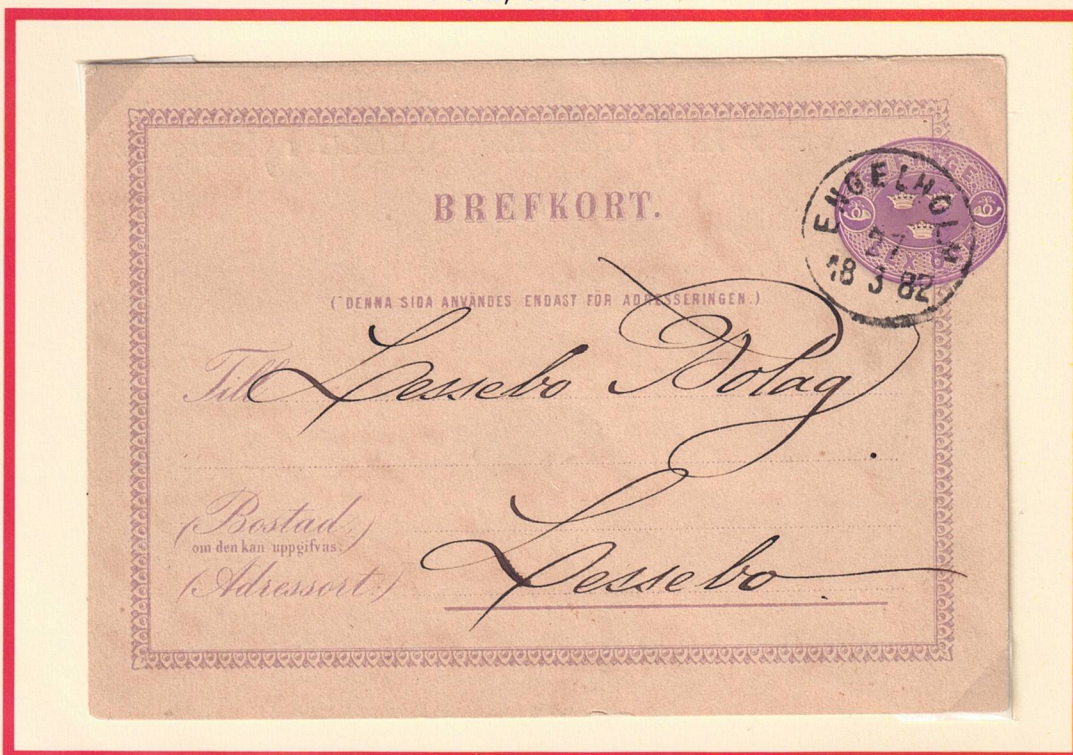 BREFKORT.
ENGELHOLM
27
18 3 82
(DENNA SIDA ANVÄNDES ENDAST FÖR ADRESSERINGEN.)
Till Lessebo Bolag
(Bostad,
om den kan uppgifvas:)
(Adressort:) Lessebo